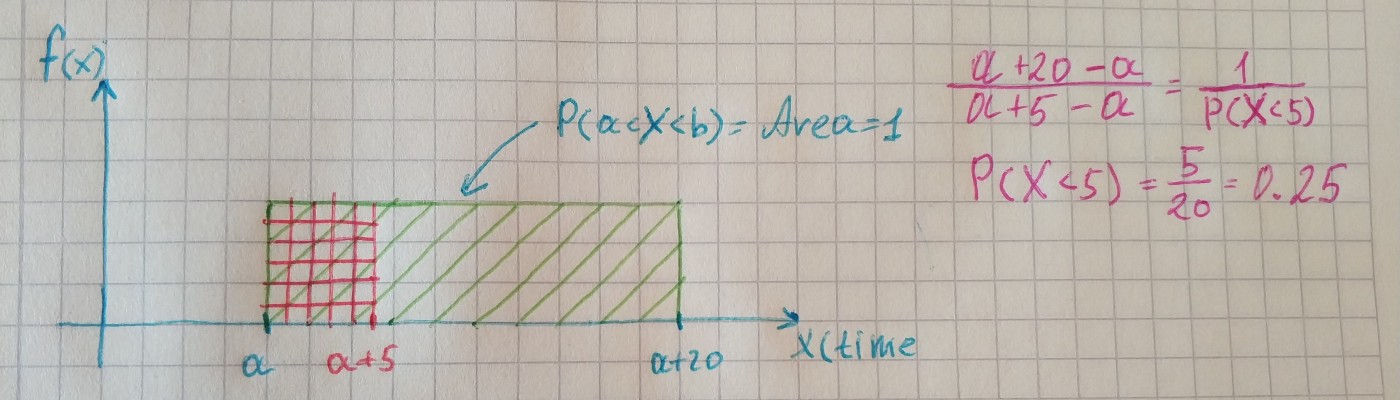 f(x)
P(a<X<b) = Area=1
a
a+5
a+20
X(time
a+20-a / a+5-a = 1 / P(X<5)
P(X<5) = 5/20 = 0.25